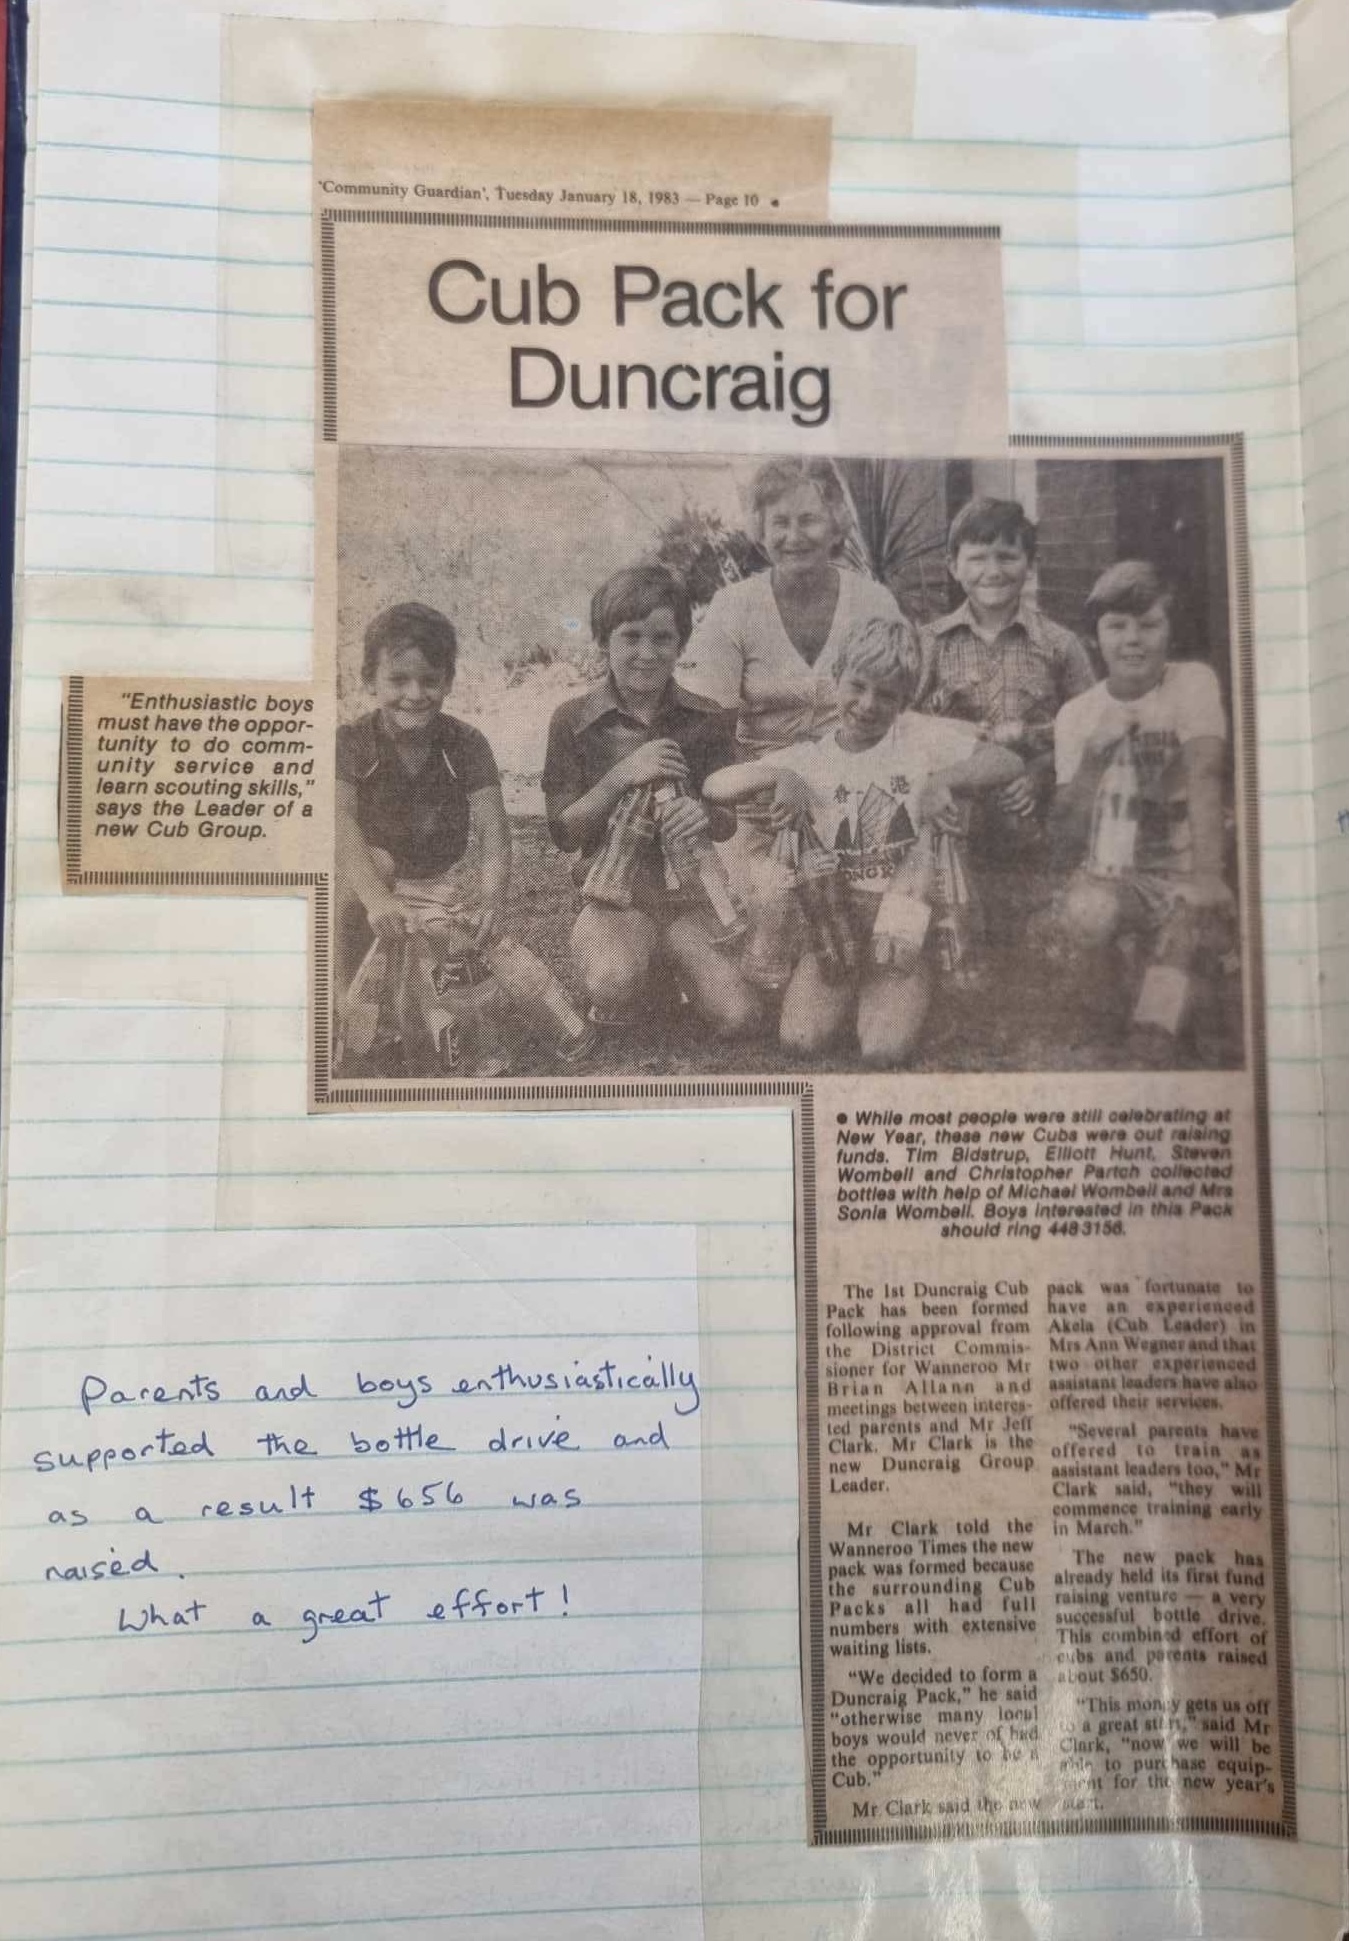 'Community Guardian', Tuesday January 18, 1983 — Page 10
Cub Pack for
Duncraig
"Enthusiastic boys
must have the oppor-
tunity to do comm-
unity service and
learn scouting skills,"
says the Leader of a
new Cub Group.
● While most people were still celebrating at
New Year, these new Cubs were out raising
funds. Tim Bidstrup, Elliott Hunt, Steven
Wombell and Christopher Partch collected
bottles with help of Michael Wombell and Mrs
Sonia Wombell. Boys interested in this Pack
should ring 448 3156.
The 1st Duncraig Cub
Pack has been formed
following approval from
the District Commis-
sioner for Wanneroo Mr
Brian Allann and
meetings between interes-
ted parents and Mr Jeff
Clark. Mr Clark is the
new Duncraig Group
Leader.
Mr Clark told the
Wanneroo Times the new
pack was formed because
the surrounding Cub
Packs all had full
numbers with extensive
waiting lists.
"We decided to form a
Duncraig Pack," he said
"otherwise many local
boys would never of had
the opportunity to be a
Cub."
Mr Clark said the new
pack was fortunate to
have an experienced
Akela (Cub Leader) in
Mrs Ann Wegner and that
two other experienced
assistant leaders have also
offered their services.
"Several parents have
offered to train as
assistant leaders too," Mr
Clark said, "they will
commence training early
in March."
The new pack has
already held its first fund
raising venture — a very
successful bottle drive.
This combined effort of
cubs and parents raised
about $650.
"This money gets us off
to a great start," said Mr
Clark, "now we will be
able to purchase equip-
ment for the new year's
start.
Parents and boys enthusiastically
supported the bottle drive and
as a result $656 was
raised.
What a great effort!